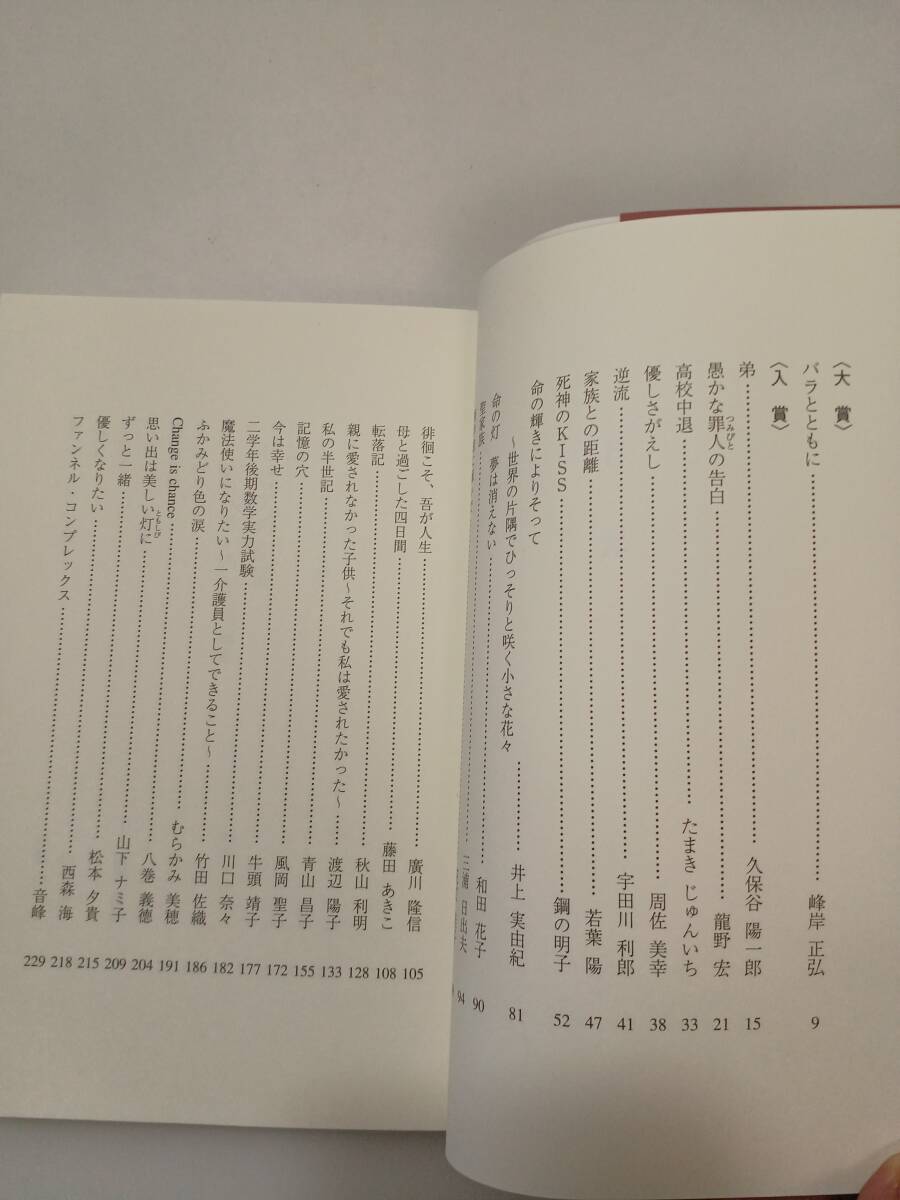 〈大 賞〉
バラとともに……峰岸 正弘 9
〈入 賞〉
弟……久保谷 陽一郎 15
愚かな罪人(つみびと)の告白……龍野 宏 21
高校中退……たまき じゅんいち 33
優しさがえし……周佐 美幸 38
逆流……宇田川 利郎 41
家族との距離……若葉 陽 47
死神のKISS……鋼の明子 52
命の輝きによりそって
〜世界の片隅でひっそりと咲く小さな花々……井上 実由紀 81
命の灯 夢は消えない……和田 花子 90
聖家族……三浦 日出夫 94
徘徊こそ、吾が人生……廣川 隆信 105
母と過ごした四日間……藤田 あきこ 108
転落記……秋山 利明 128
親に愛されなかった子供〜それでも私は愛されたかった〜……渡辺 陽子 133
私の半世記……青山 昌子 155
記憶の穴……風岡 聖子 172
今は幸せ……牛頭 靖子 177
二学年後期数学実力試験……川口 奈々 182
魔法使いになりたい〜一介護員としてできること〜……竹田 佐織 186
ふかみどり色の涙……むらかみ 美穂 191
Change is chance……八巻 義徳 204
思い出は美しい灯(ともしび)に……山下 ナミ子 209
ずっと一緒……松本 夕貴 215
優しくなりたい……西森 海 218
ファンネル・コンプレックス……音峰 229